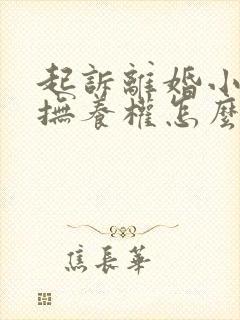 起訴離婚小
撫養權怎麼
焦長華